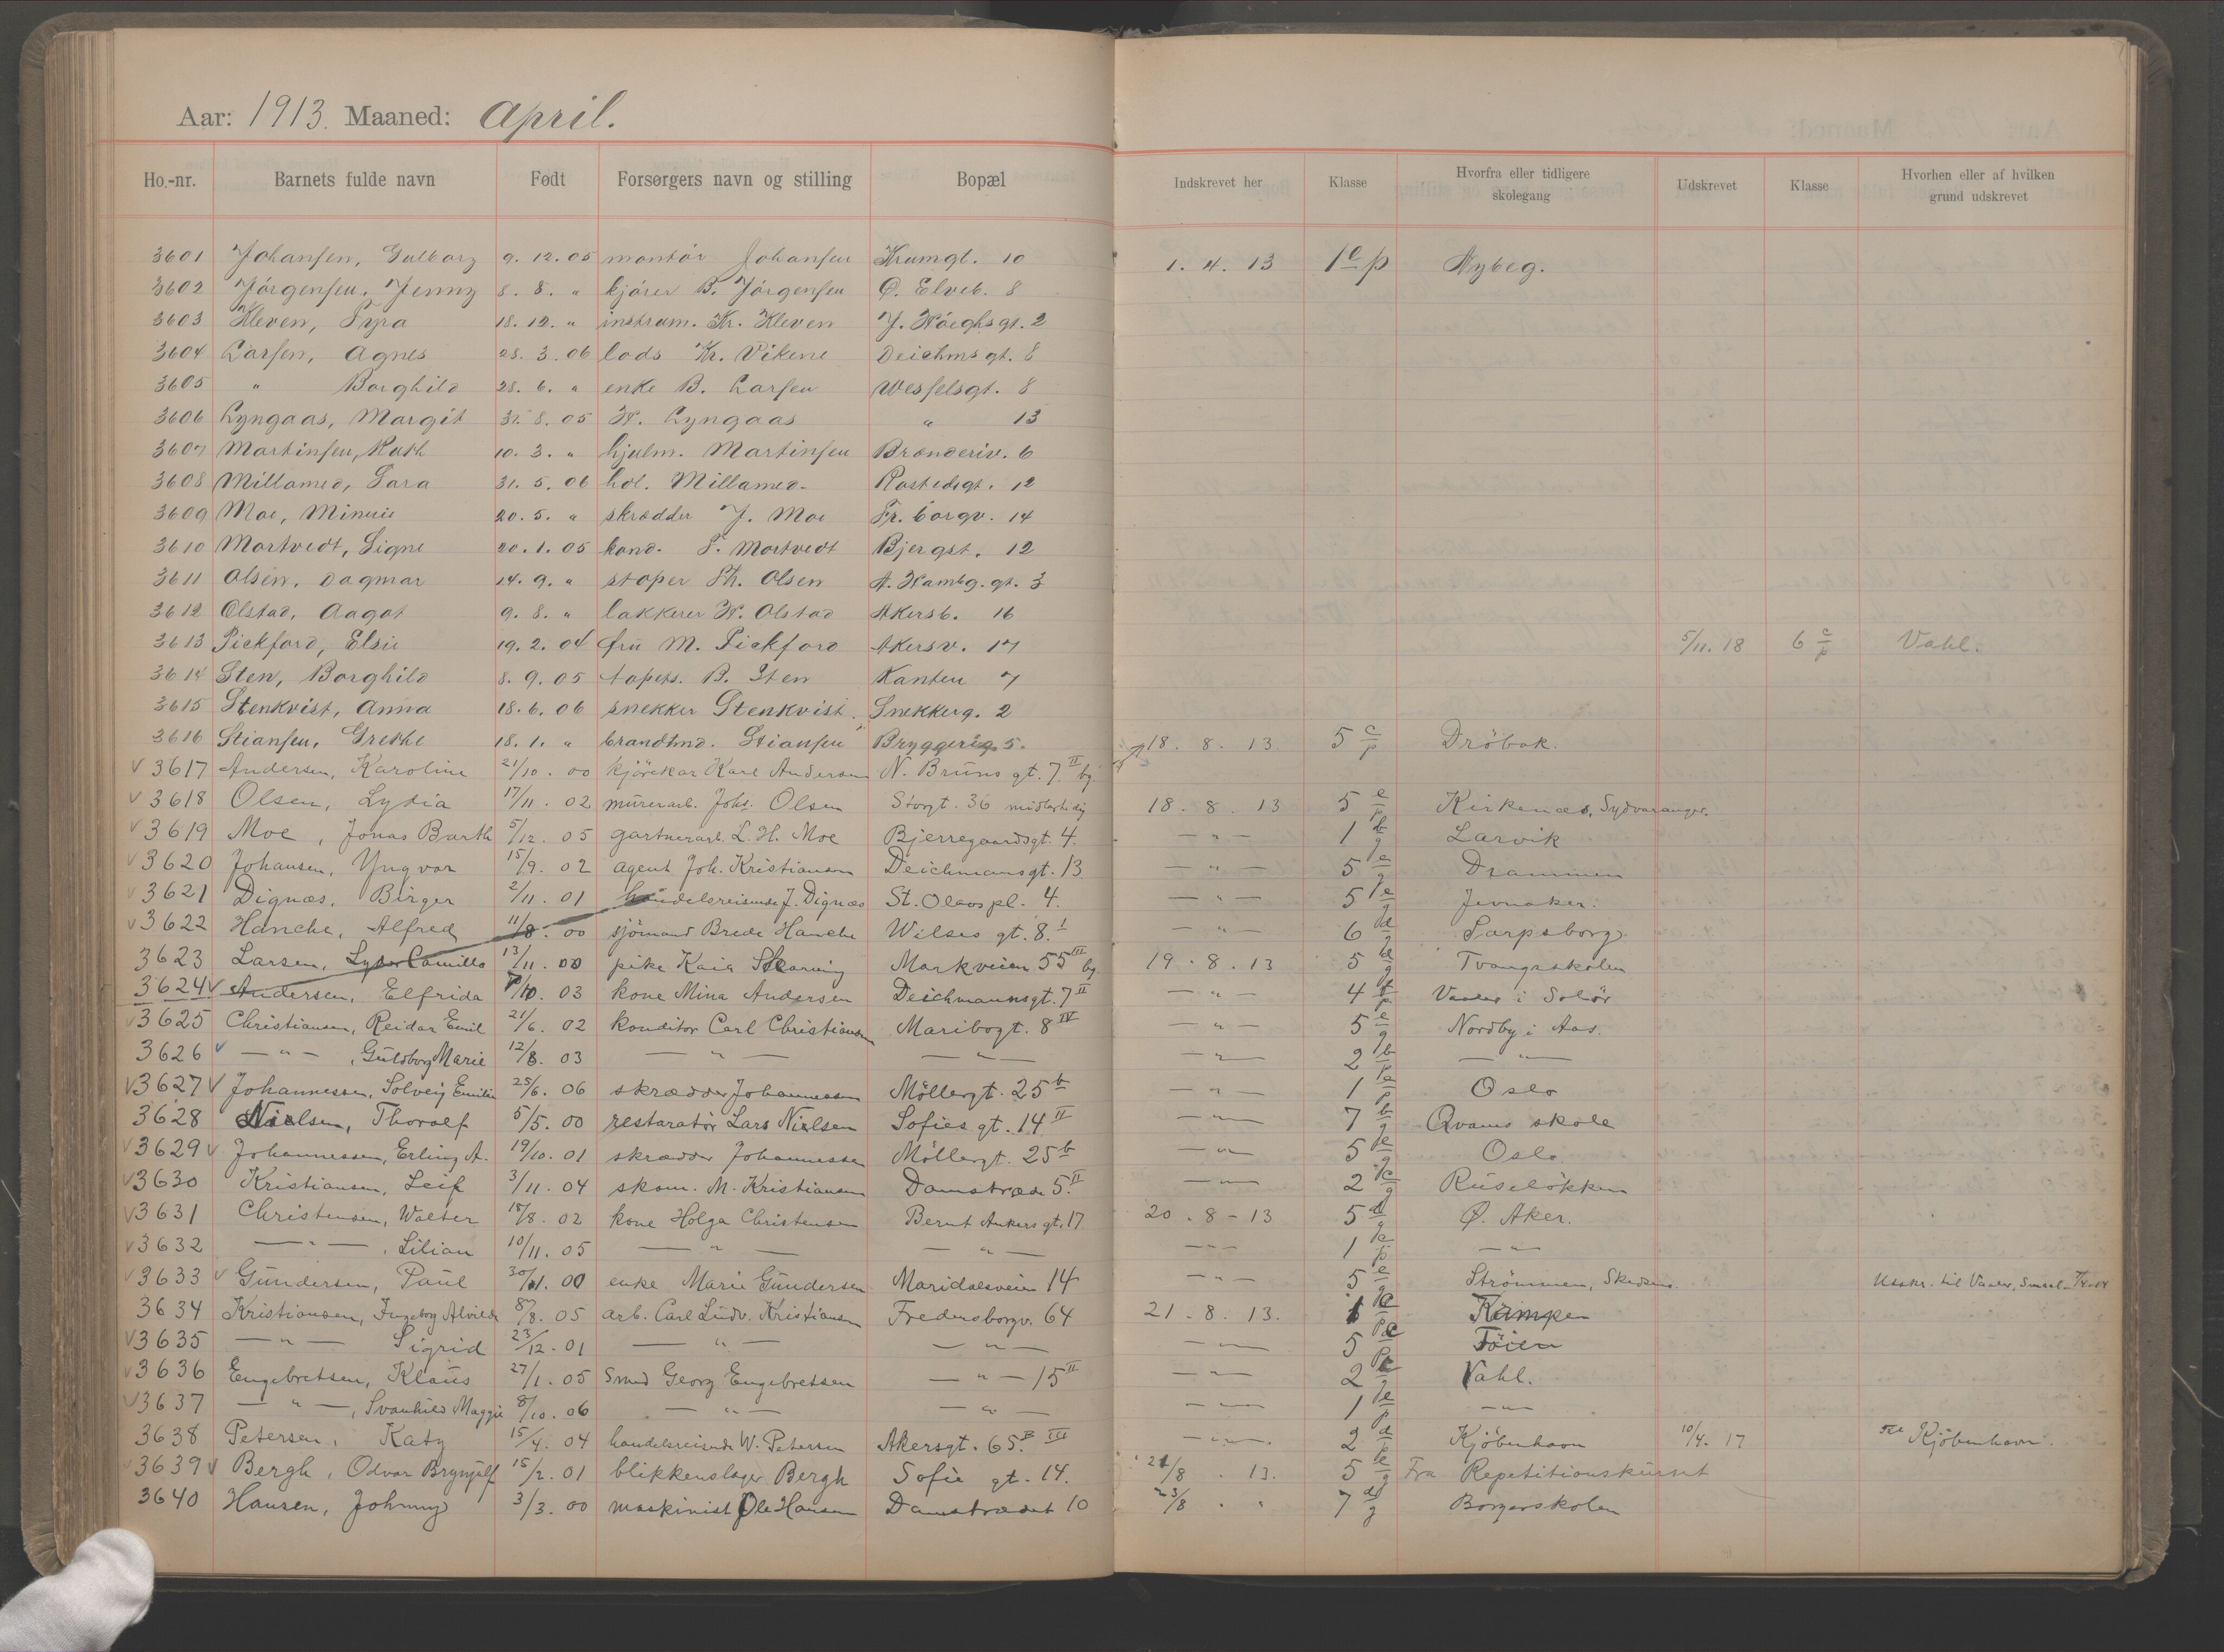 Aar: 1913. Maaned: April.
Ho.-nr. Barnets fulde navn Født Forsørgers navn og stilling Bopæl Indskrevet her Klasse Hvorfra eller tidligere skolegang Udskrevet Klasse Hvorhen eller af hvilken grund udskrevet
3601 Johansen, Gulborg 9. 12. 05 montör Johansen Krumgt. 10 1. 4. 13 1 e p Nybeg.
3602 Jörgensen, Jenny 8. 8. " kjörer B. Jörgensen Ö. Elveb. 8
3603 Kleven, 18. 12. " instrum. Kr. Kleven J. Höeghsgt. 2
3604 Larsen, Agnes 28. 3. 06 lods Kr. Vikene Deichmsgt. 8
3605 " Borghild 28. 6. " enke B. Larsen Wesselsgt. 8
3606 Lyngaas, Margit 31. 8. 05 H. Lyngaas " 13
3607 Martinsen, Ruth 10. 3. " hjulm. Martinsen Brænderiv. 6
3608 Millamed, Sara 31. 5. 06 hdl. Millamed. Rostedsgt. 12
3609 Moe, Minnie 20. 5. " skrædder J. Moe Fr. borgv. 14
3610 Mortvedt, Signe 20. 1. 05 kond. S. Mortvedt Bjergst. 12
3611 Olsen, Dagmar 14. 9. " stöper Th. Olsen A. Hambg. gt. 3
3612 Olstad, Aagot 9. 8. " lakkerer H. Olstad Akersb. 16
3613 Pickford, Elsie 19. 2. 04 fru M. Pickford Akersv. 17 5/11. 18 6 c p Vahl.
3614 Sten, Borghild 8. 9. 05 tapets. B. Sten Kanten 7
3615 Stenkvist, Anna 18. 6. 06 snekker Stenkvist. Snekkerg. 2
3616 Stiansen, Grethe 18. 1. " brandtmd. Stiansen Bryggerig. 5.
v 3617 Andersen, Karoline 21/10. 00 kjörekar Karl Andersen N. Bruns gt. 7 II bg. 18. 8. 13 5 c p Dröbak.
v 3618 Olsen, Lydia 17/11. 02 murerarb. Johs. Olsen Storgt. 36 midlertidig 18. 8. 13 5 e p Kirkenæs, Sydvaranger.
v 3619 Moe, Jonas Barth 5/12. 05 gartnerarb. L. H. Moe Bjerregaardsgt. 4. — " — 1 b g Larvik
v 3620 Johansen, Yngvar 15/9. 02 agent Joh. Kristiansen Deichmansgt. 13 — " — 5 e g Drammen
v 3621 Dignæs, Birger 2/11. 01 handelsreisende J. Dignæs St. Olavs pl. 4. — " — 5 e g Jevnaker.
v 3622 Hanche, Alfred 11/8. 00 sjömand Brede Hanche Wilses gt. 8. I — " — 6 d g Sarpsborg
3623 Larsen, Camillo 13/11. 00 pike Kaia Markveien 55 III bg 19. 8. 13 5 d g Tvangsskolen
3624 v Andersen, Elfrida 7/10. 03 kone Mina Andersen Deichmannsgt. 7 II — " — 4 p Vaaler i Solör
v 3625 Christiansen, Reidar Emil 21/6. 02 konditor Carl Christiansen Maribogt. 8 IV — " — 5 e g Nordby i Aas.
3626 v — " —, Guldborg Marie 12/8. 03 — " — — " — — " — 2 b p — " —
v 3627 v Johannessen, Solveig Emilie 25/6. 06 skrædder Johannessen Möllergt. 25 b — " — 1 e p Oslo
3628 Nielsen, Thoralf 5/5. 00 restaratör Lars Nielsen Sofies gt. 14 II — " — 7 b g Qvams skole
v 3629 v Johannessen, Erling A. 19/10. 01 skrædder Johannessen Möllergt. 25 b — " — 5 e g Oslo
v 3630 Kristiansen, Leif 3/11. 04 skom. M. Kristiansen Damstræde 5. II — " — 2 c g Ruselökken
v 3631 Christensen, Walter 18/8. 02 kone Helga Christensen Bernt Ankers gt. 17 20. 8 - 13 5 d g Ö. Aker.
v 3632 — " —, Lilian 10/11. 05 — " — — " — — " — 1 e p — " —
v 3633 v Gundersen, Paul 30/11. 00 enke Marie Gundersen Maridalsveien 14 — " — 5 e g Strömmen, Skedsmo. Udskr. til Vaaler,
3634 Kristiansen, Ingeborg Alvilde 8/8. 05 arb. Carl Ludv. Kristiansen Fredensborgv. 64 21. 8. 13. 1 e p Kampen
v 3635 — " — Sigrid 23/12. 01 — " — — " — — " — 5 c p Töien
v 3636 Engebretsen, Klaus 27/1. 05 Smed Georg Engebretsen — " — 15 II — " — 2 g Vahl.
v 3637 — " —, Svanhild Maggie 8/10. 06 — " — — " — — " — 1 e p — " —
3638 Petersen, Katy 15/4. 04 handelsreisende W. Petersen Akersgt. 65 B. III — " — 2 d p Kjöbenhavn 10/4. 17 til Kjöbenhavn.
v 3639 v Bergh, Odvar Brynjulf 15/2. 01 blikkenslager Bergh Sofie gt. 14. 21/8. 13. 5 e g Fra Repetitionskurset
3640 Hansen, Johnny 3/3. 00 maskinist Ole Hansen Damstrædet 10 23/8 " " 7 d g Borgerskolen